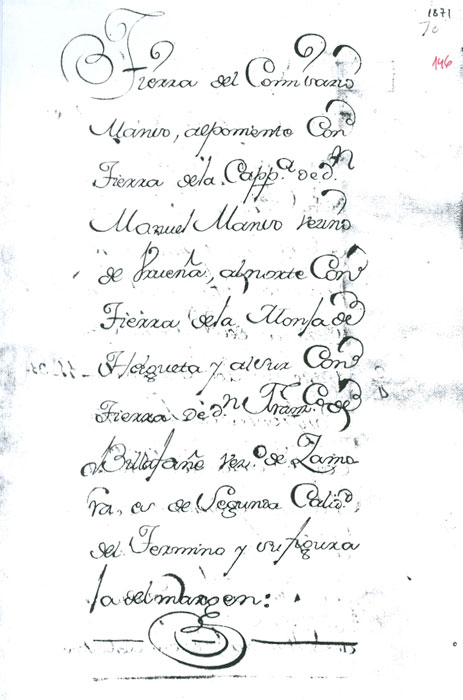 1871
70
146
Tierra del Comisario
Manso, alpomiento Con
Tierra dela Capp.ª de d.n
Manuel Manso vezino
de Brueña, alnorte Con
Tierra dela Monja de
Holgueta y alsur Con
Tierra de d.n Fran.co de
Billafañe vez.o de Zamo
ra, es de Segunda Calid.d
del Termino y su figura
la del margen: